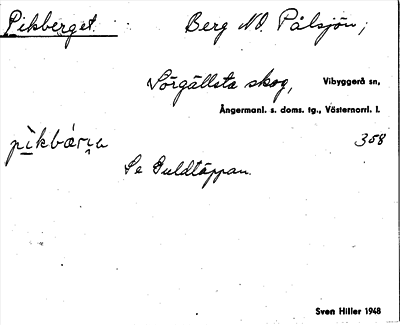 Pikberget Berg NO. Pålsjön;
Sörgällsta skog, Vibyggerå sn,
Ångermanl. s. doms. tg., Västernorrl. l.
358
Se Guldtäppan.
Sven Hiller 1948